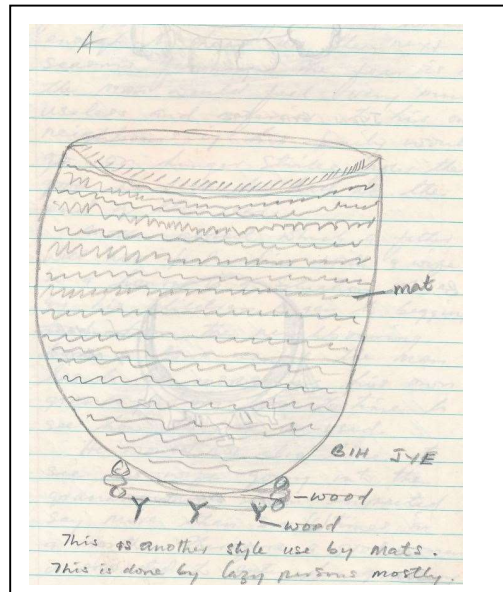 A
mat
BIH JYE
wood
wood
This is another style use by mats.
This is done by lazy persons mostly.